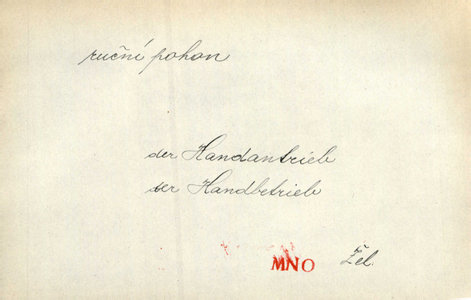 ruční pohon
der Handantrieb
der Handbetrieb
MNO Žel.